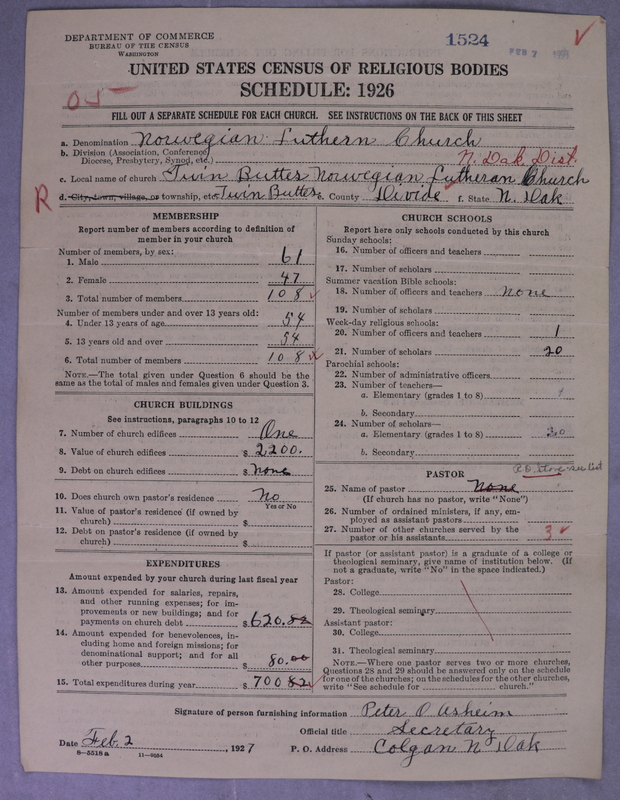 DEPARTMENT OF COMMERCE
BUREAU OF THE CENSUS
WASHINGTON
1524
FEB 7
UNITED STATES CENSUS OF RELIGIOUS BODIES
SCHEDULE: 1926
FILL OUT A SEPARATE SCHEDULE FOR EACH CHURCH. SEE INSTRUCTIONS ON THE BACK OF THIS SHEET
a. Denomination Norwegian Luthern Church
b. Division (Association, Conference, Diocese, Presbytery, Synod, etc.) N. Dak. Dist.
c. Local name of church Twin Butte Norwegian Lutheran Church
R
d. City, town, village, or township, etc. Twin Butte e. County Divide f. State N. Dak
MEMBERSHIP
Report number of members according to definition of
member in your church
Number of members, by sex:
1. Male 61
2. Female 47
3. Total number of members 108
Number of members under and over 13 years old:
4. Under 13 years of age 54
5. 13 years old and over 54
6. Total number of members 108
NOTE.—The total given under Question 6 should be the
same as the total of males and females given under Question 3.
CHURCH BUILDINGS
See instructions, paragraphs 10 to 12
7. Number of church edifices One
8. Value of church edifices $ 2200.
9. Debt on church edifices $ none
10. Does church own pastor's residence No
Yes or No
11. Value of pastor's residence (if owned by
church) $
12. Debt on pastor's residence (if owned by
church) $
EXPENDITURES
Amount expended by your church during last fiscal year
13. Amount expended for salaries, repairs,
and other running expenses; for im-
provements or new buildings; and for
payments on church debt $ 620.82
14. Amount expended for benevolences, in-
cluding home and foreign missions; for
denominational support; and for all
other purposes $ 80.00
15. Total expenditures during year $ 700 82
CHURCH SCHOOLS
Report here only schools conducted by this church
Sunday schools:
16. Number of officers and teachers
17. Number of scholars
Summer vacation Bible schools:
18. Number of officers and teachers none
19. Number of scholars
Week-day religious schools:
20. Number of officers and teachers 1
21. Number of scholars 20
Parochial schools:
22. Number of administrative officers
23. Number of teachers—
a. Elementary (grades 1 to 8)
b. Secondary
24. Number of scholars—
a. Elementary (grades 1 to 8)
b. Secondary
PASTOR
25. Name of pastor None
(If church has no pastor, write "None")
26. Number of ordained ministers, if any, em-
ployed as assistant pastors
27. Number of other churches served by the
pastor or his assistants 3
If pastor (or assistant pastor) is a graduate of a college or
theological seminary, give name of institution below. (If
not a graduate, write "No" in the space indicated.)
Pastor:
28. College
29. Theological seminary
Assistant pastor:
30. College
31. Theological seminary
NOTE.—Where one pastor serves two or more churches,
Questions 28 and 29 should be answered only on the schedule
for one of the churches; on the schedules for the other churches,
write "See schedule for church."
Signature of person furnishing information Peter O Asheim
Official title Secretary
Date Feb. 2, 1927 P. O. Address Colgan N Dak
8-5518a 11-9354